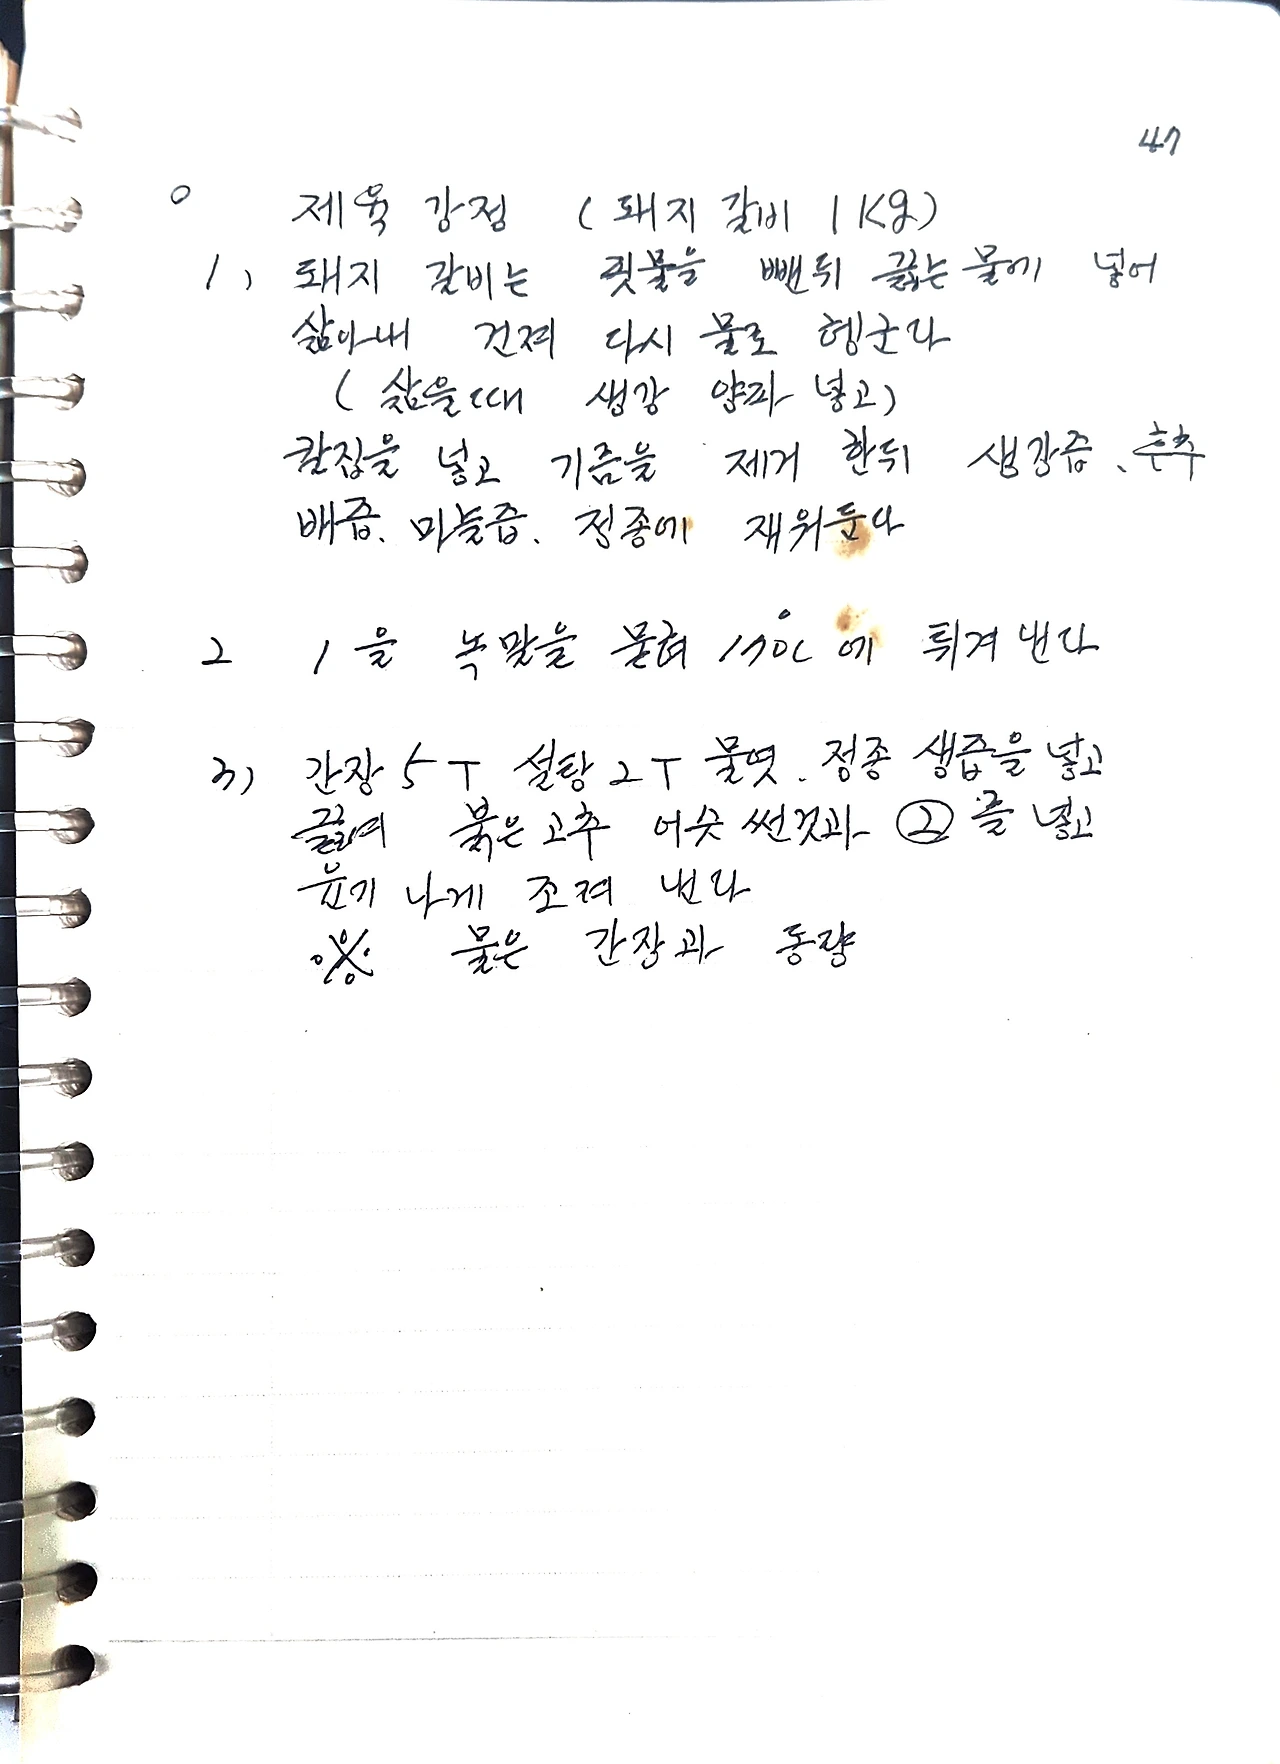 47
○ 제육 강정 (돼지 갈비 1Kg)
1) 돼지 갈비는 핏물을 뺀뒤 끓는 물에 넣어
삶아내 건져 다시 물로 헹군다
(삶을때 생강 양파 넣고)
칼집을 넣고 기름을 제거 한뒤 생강즙、후추
배즙、마늘즙、정종에 재워둔다
2 1을 녹말을 묻혀 170℃에 튀겨 낸다
3) 간장 5T 설탕 2T 물엿、정종 생즙을 넣고
끓여 붉은 고추 어슷 썬것과 ② 를 넣고
윤기 나게 조려 낸다
※ 물은 간장과 동량